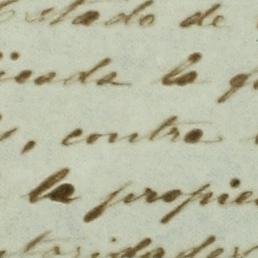 Estado de
icada la q
s, contra
la propie
utoridades